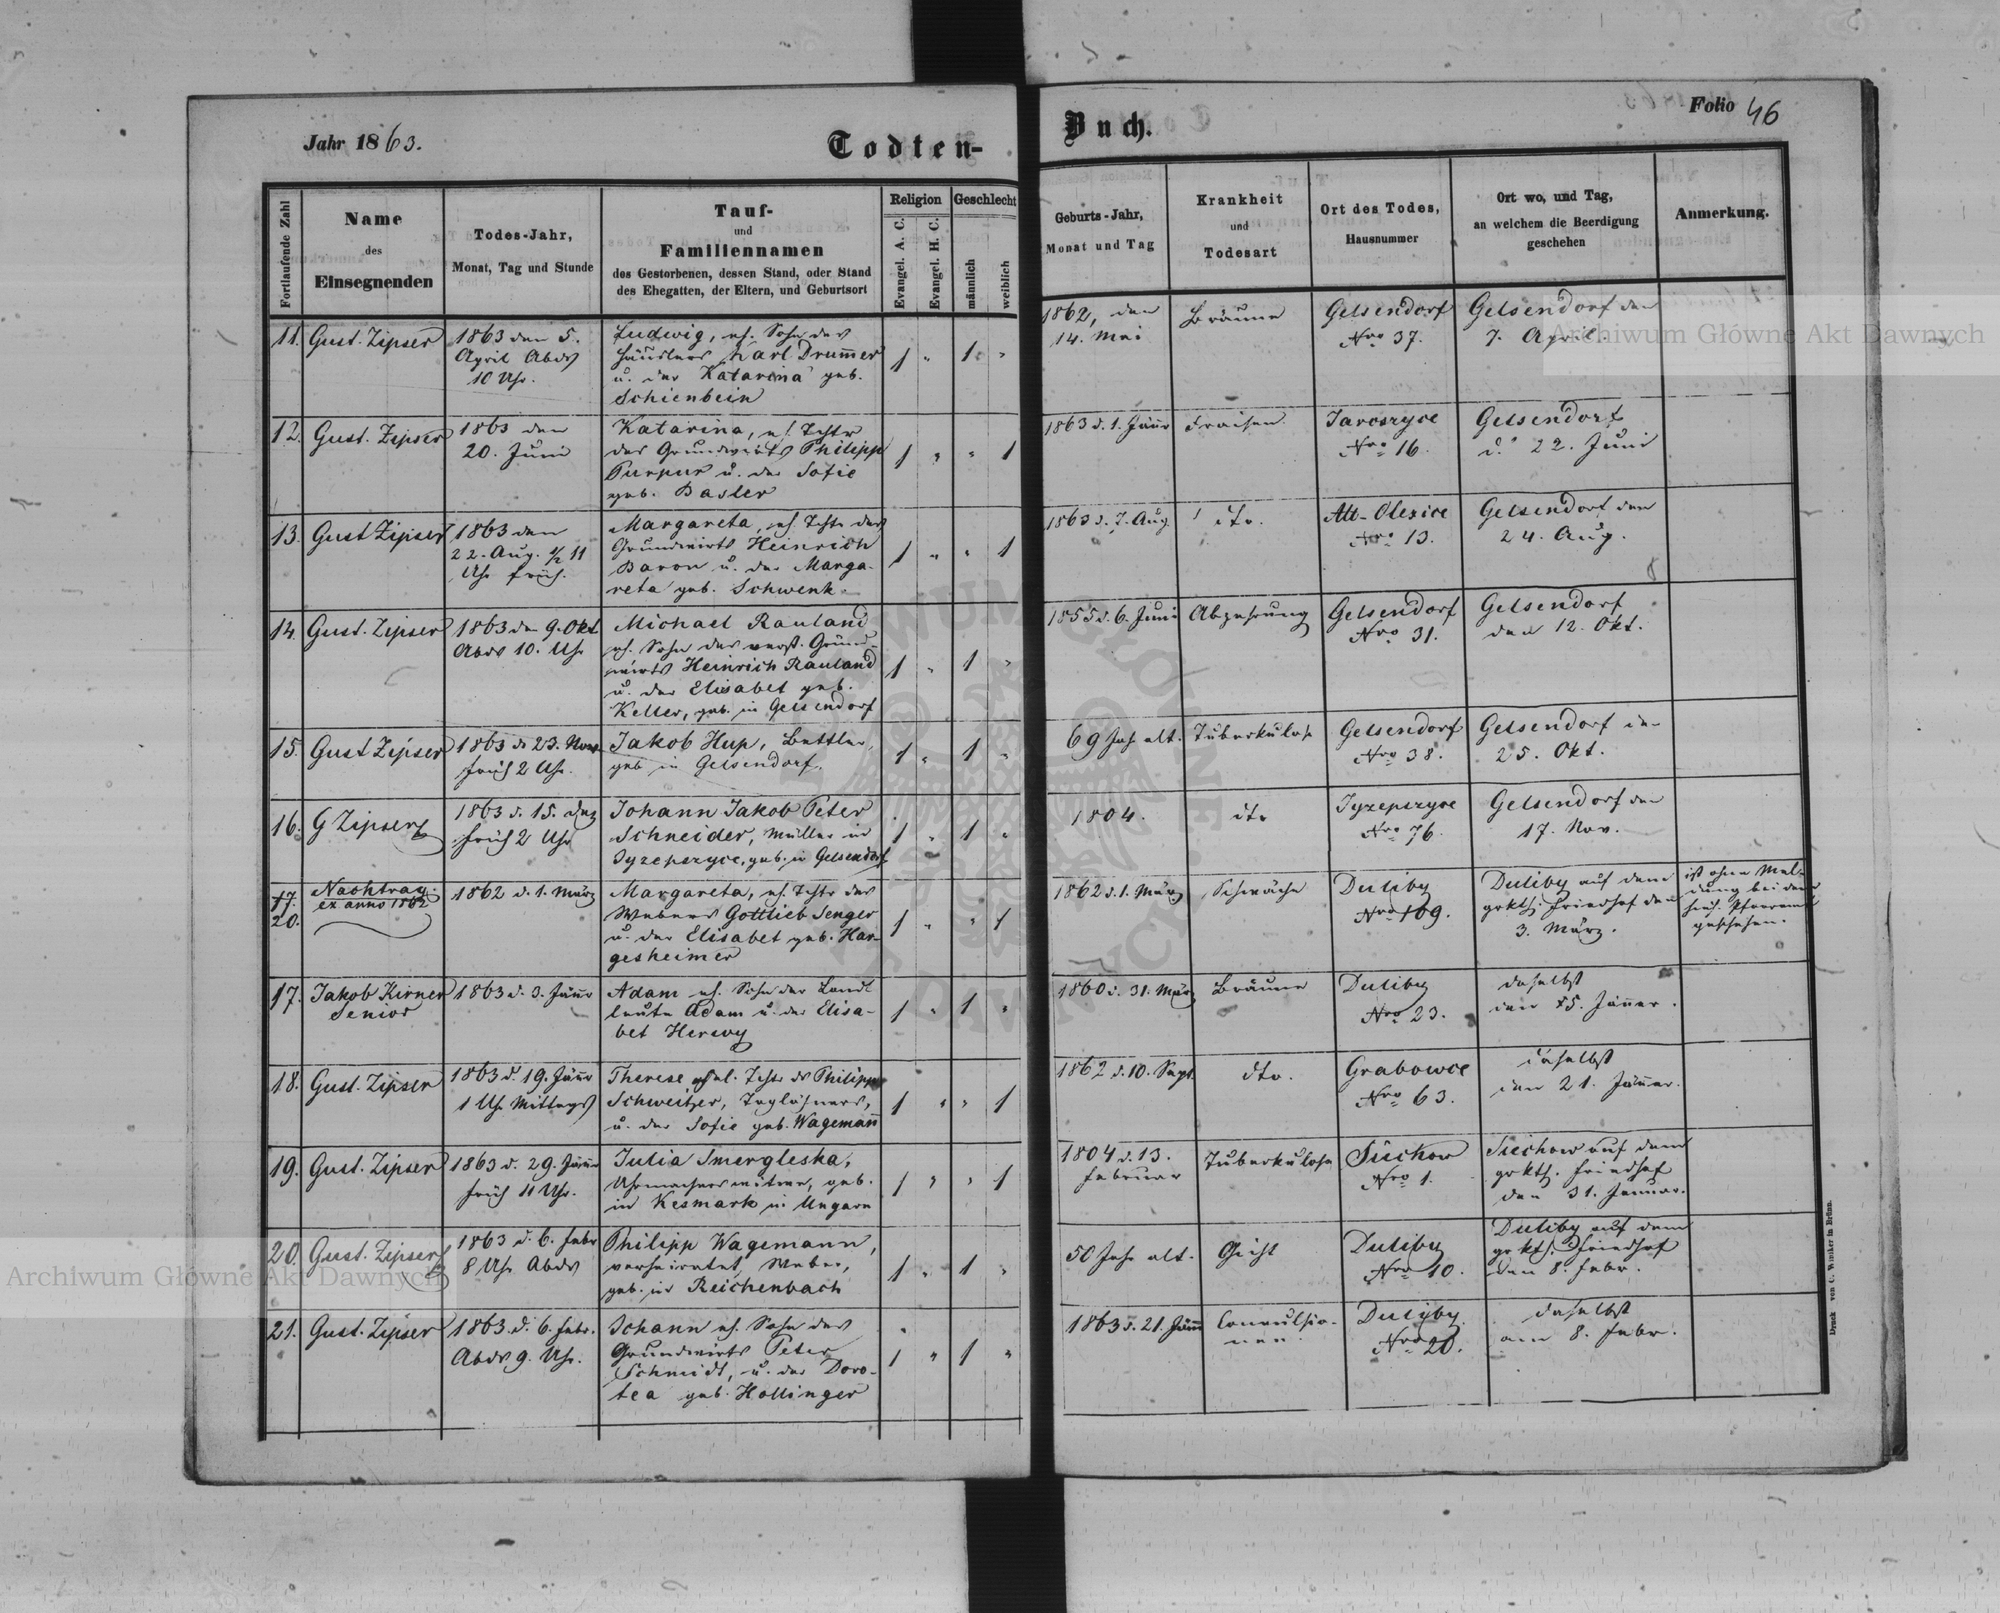 Jahr 1863.
Todten-
Buch.
Folio 46
Fortlaufende Zahl
Name
des
Einsegnenden
Todes-Jahr,
Monat, Tag und Stunde
Tauf-
und
Familiennamen
des Gestorbenen, dessen Stand, oder Stand
des Ehegatten, der Eltern, und Geburtsort
Religion
Evangel. A. C.
Evangel. H. C.
Geschlecht
männlich
weiblich
Geburts-Jahr,
Monat und Tag
Krankheit
und
Todesart
Ort des Todes,
Hausnummer
Ort wo, und Tag,
an welchem die Beerdigung
geschehen
Anmerkung.
11. Gust. Zipser
1863 den 5.
April Abds
10 Uhr.
Ludwig, eh. Sohn des
Häuslers Karl Drum̅er
u. der Katarina geb.
Schienbein
1 " 1 "
1862, den
14. Mai
Bräune
Gelsendorf
Nro 37.
Gelsendorf den
7. April.
12. Gust. Zipser
1863 den
20. Juni
Katarina, eh. Tchtr
des Grundwirts Philipp
Purpur u. der Sofie
geb. Basler
1 " " 1
1863 d. 1. Jänr
Fraisen
Jaroszyce
Nro 16.
Gelsendorf
d. 22. Juni
13. Gust Zipser
1863 den
22. Aug. ½ 11
Uhr früh.
Margareta, eh. Tchtr des
Grundwirts Heinrich
Baron u. der Marga-
reta geb. Schwenk.
1 " " 1
1863 d. 7. Aug
dto.
Alt-Olexice
Nro 13.
Gelsendorf den
24. Aug.
14. Gust. Zipser
1863 den 9. Okt
Abds 10. Uhr
Michael Rauland
eh. Sohn des verst. Grund-
wirts Heinrich Rauland
u. der Elisabet geb.
Keller, geb. in Gelsendorf
1 " 1 "
1855 d. 6. Juni
Abzehrung
Gelsendorf
Nro 31.
Gelsendorf
den 12. Okt.
15. Gust Zipser
1863 d. 23. Nov.
früh 2 Uhr.
Jakob Hup, Bettler,
geb in Gelsendorf.
1 " 1 "
69 Jahr alt.
Tuberkulose
Gelsendorf
Nro 38.
Gelsendorf den
25. Okt.
16. G Zipser
1863 d. 15. Dez
früh 2 Uhr
Johann Jakob Peter
Schneider, Müller in
Syzepszyce, geb. in Gelsendorf
1 " 1 "
1804.
dto
Nro 76.
Gelsendorf den
17. Nov.
17.
20.
Nachtrag
ex anno 1862
1862 d. 1. März
Margareta, eh. Tchtr des
Webers Gottlieb Senger
u. der Elisabet geb. Har-
gesheimer
1 " " 1
1862 d. 1. März
Schwäche
Duliby
Nro 109.
Duliby auf dem
grkth. Friedhof den
3. März.
ist ohne Mel-
dung bei dem
hies. Pfarramt
geschehen.
17. Jakob Kirner
Senior
1863 d. 3. Jänr
Adam eh. Sohn der Land
leute Adam u. der Elisa-
bet Herwy
1 " 1 "
1860 d. 31. März
Bräune
Duliby
Nro 23.
daselbst
den 5. Jän̅er.
18. Gust. Zipser
1863 d. 19. Jänr
1 Uhr Mittags
Therese ehel. Tchtr ds Philipp
Schweitzer, Taglöhners,
u. der Sofie geb. Wagemañ
1 " " 1
1862 d. 10. Sept.
dto.
Grabowce
Nro 63.
daselbst
den 21. Jän̅er.
19. Gust. Zipser
1863 d. 29. Jänr
früh 11 Uhr.
Julia Smergleska,
Uhrmacherswitwe, geb.
in Kesmark in Ungarn
1 " " 1
1804 d. 13.
Februar
Tuberkulose
Suchow
Nro 1.
Suchow auf dem
grkth. Friedhof
den 31. Januar.
20. Gust. Zipser
1863 d. 6. Febr
8 Uhr Abds
Philipp Wagemann,
verheiratet, Weber,
geb. in Reichenbach
1 " 1 "
50 Jahr alt.
Gicht
Duliby
Nro 10.
Duliby auf dem
grkth. Friedhof
den 8. Febr.
21. Gust. Zipser
1863 d. 6. Febr.
Abds 9. Uhr.
Johann eh. Sohn des
Grundwirts Peter
Schmidt, u. der Doro-
tea geb. Hollinger
1 " 1 "
1863 d. 21. Jänn
Convulsio-
nen
Dulyby
Nro 20.
daselbst
am 8. Febr.
Druck von C. Winiker in Brünn.
Archiwum Główne Akt Dawnych
Archiwum Główne Akt Dawnych